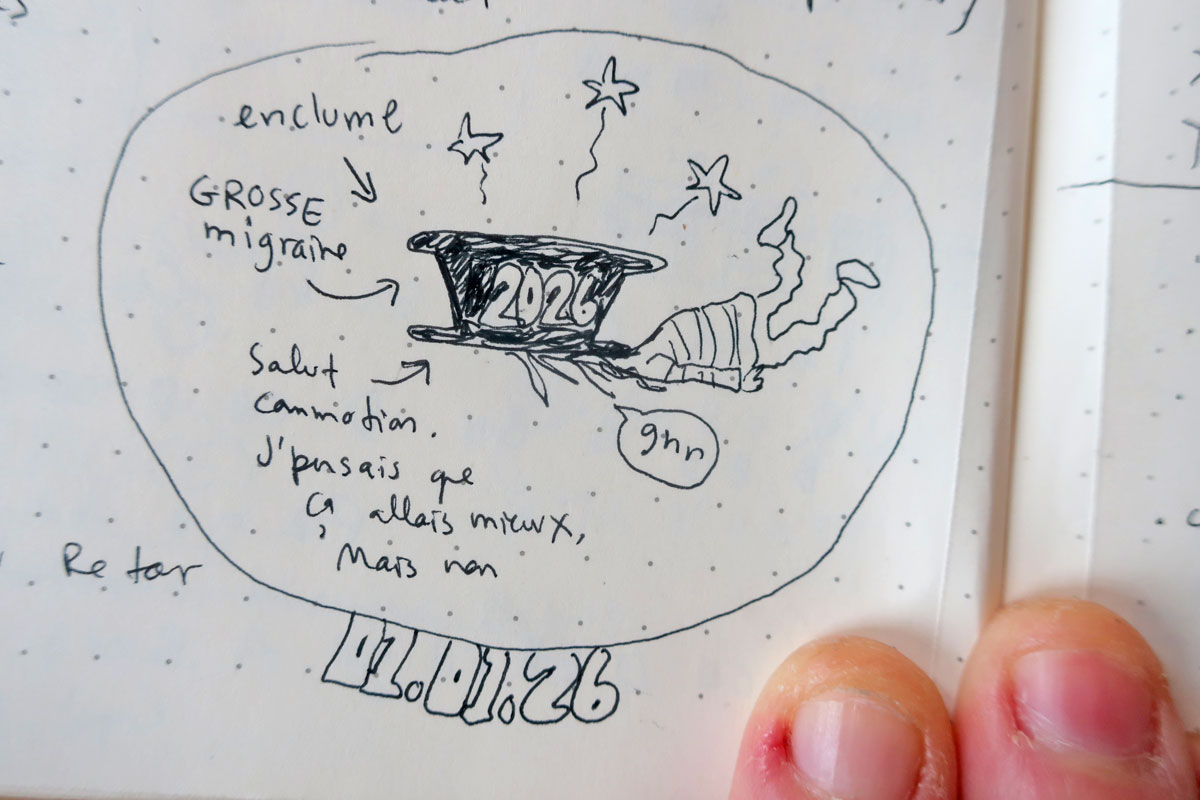 enclume
GROSSE
migraine
2026
Salut
commotion.
J'pensais que
ça allais mieux,
Mais non
ghn
Retor
01.01.26